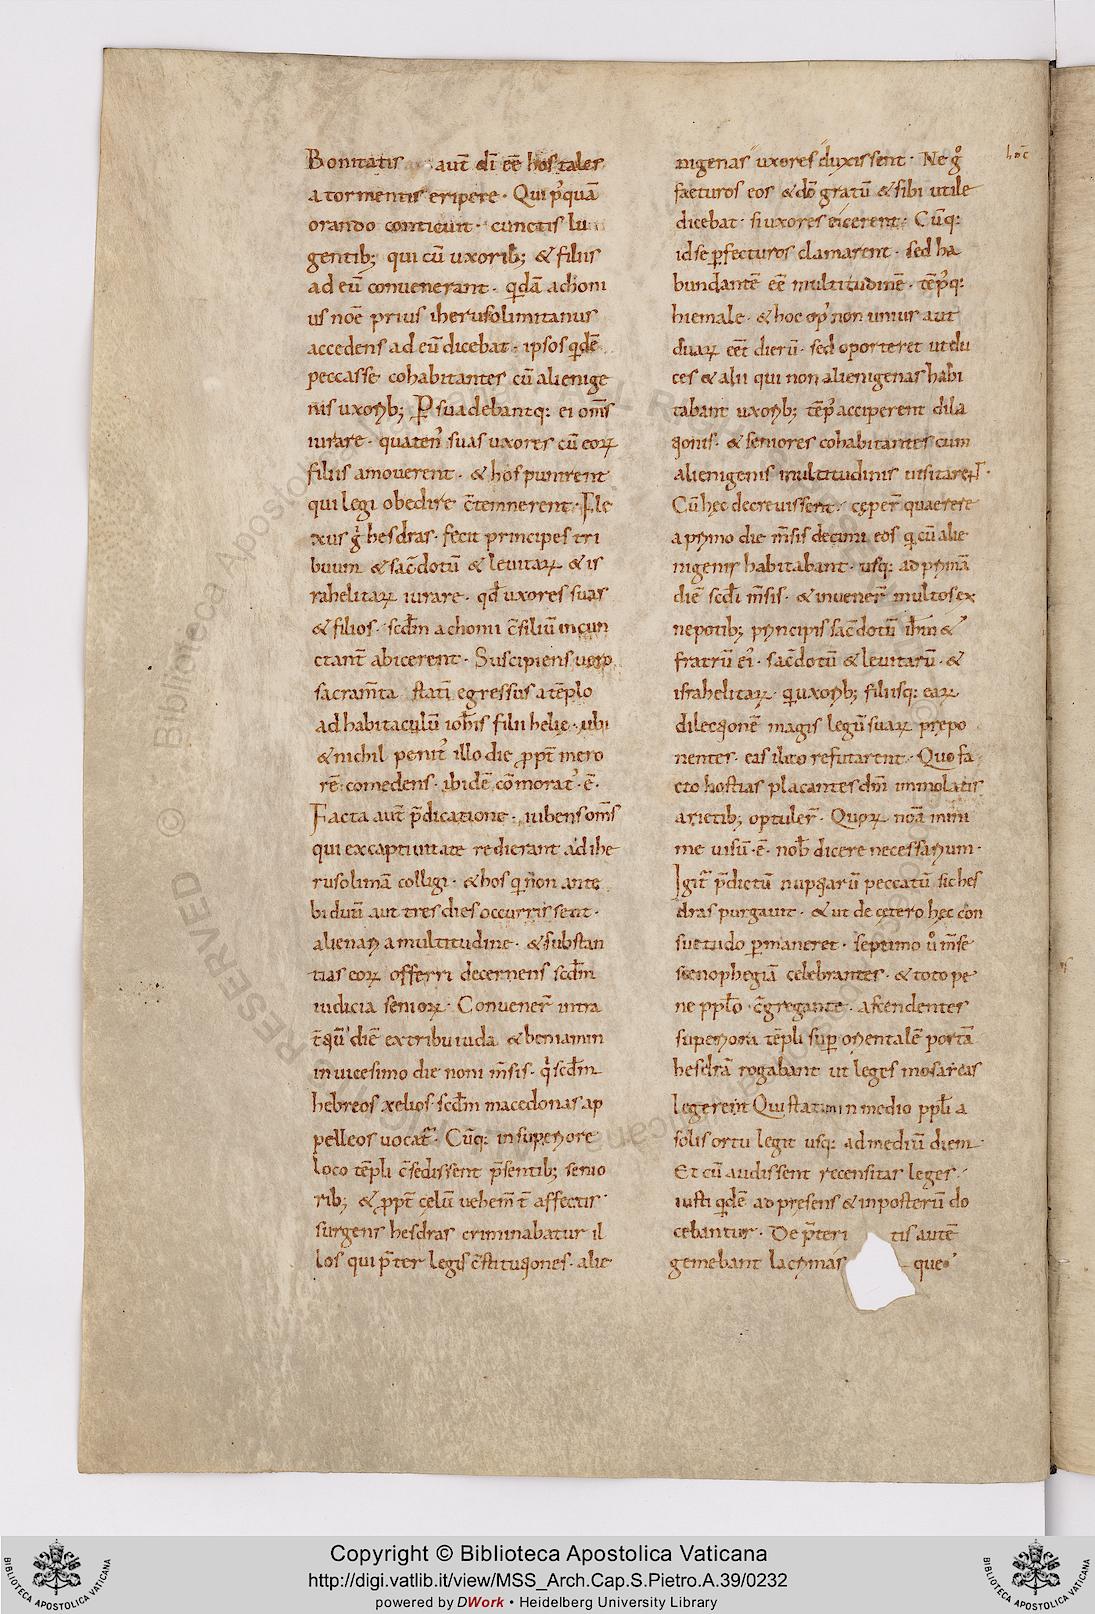 Bonitatis autē dī eē hos tales
a tormentis eripere. Qui p̄quā
orando conticuit. cunctis lu
gentib; qui cū uxorib; & filiis
ad eū convenerant. qdā achoni
us noē prius iherusolimitanus
accedens ad eū dicebat. ipsos qdē
peccasse cohabitantes cū alienige
nis uxorib; Psuadebantq: ei om̄s
iurare. quaten' suas uxores cū eoꝝ
filiis amouerent. & hos punirent
qui legi obedire c̄temnerent. Fle
xus gͥ hesdras. fecit principes tri
buum & sac̄dotū & leuitaꝝ & is
rahelitaꝝ iurare. qd̄ uxores suas
& filios. scdm̄ achoni c̄siliū incun
ctant' abicerent. Suscipiens uero
sacram̄ta statī egressus a tēplo
ad habitaculū ioħis filii helie. ubi
& nichil penit' illo die ꝓpt̄ mero
rē comedens. ibidē cōmorat' .ē.
Facta autē p̄dicatione. iubens om̄s
qui ex captiuitate redierant ad ihe
rusolimā colligi. & hos qͥ non ante
biduū aut tres dies occurrissent.
alienari a multitudine. & substan
tias eoꝝ offerri decernens scdm̄
iudicia senioꝝ. Conuener̄ intra
t̄qͣū diē ex tribu iuda & beniamin
in uicesimo die noni m̄sis. qͥ scdm̄
hebreos xelios. scdm̄ macedonas ap
pelleos uocat̄. Cūq: in superiore
loco tēpli c̄sedissent p̄sentib; senio
rib; & ꝓpt̄ çelū uehem̄t̄ affectis.
surgens hesdras criminabatur il
los qui p̄ter legis c̄stitutiones. alie
nigenas uxores duxissent. Ne gͦ
hoc̄
facturos eos & dō gratū & sibi utile
dicebat. si uxores eicerent. Cūq:
id se ꝑfecturos clamarent. sed ha
bundantē eē multitudinē. tēp'q:
hiemale. & hoc op' non unius aut
duaꝝ eēt dierū. sed oporteret ut du
ces & alii qui non alienigenas habi
tabant uxorib; tēp' acciperent dila
tionis. & seniores cohabitantes cum
alienigenis multitudinis uisitareT.
Cū hec decreuissent. ceper̄ quaerere
a primo die m̄sis decimi eos qͥ cū alie
nigenis habitabant. usq: ad primā
diē scdi m̄sis. & inuener̄ multos ex
nepotib; principis sac̄dotū ih̄m &
fratrū ei'. sac̄dotū & leuitarū. &
israhelitaꝝ. qͥ uxorib; filiisq: eaꝝ
dilectionē magis legū suaꝝ prepo
nentes. eas ilico refutarent. Quo fa
cto hostias placantes dm̄ immolatis
arietib; optuler̄. Quoꝝ noā mini
me uisū .ē. nob̄ dicere necessarium.
Igit̄ p̄dictū nuptiarū peccatū sic hes
dras purgauit. & ut de cetero hec con
suetudo ꝑmaneret. septimo uͦ m̄se
scenophegiā celebrantes. & toto pe
ne ppl̄o c̄gregante. ascendentes
superiora tēpli suꝑ orientalē portā
hesdrā rogabant ut leges mosaicas
legerent Qui stat.. in medio ppl̄i a
solis ortu legit usq: ad mediū diem.
Et cū audissent recensitas leges.
iusti qͥdē ad presens & in posterū do
cebantur. De p̄teri tis autē
gemebant lacrimas que
Copyright © Biblioteca Apostolica Vaticana
http://digi.vatlib.it/view/MSS_Arch.Cap.S.Pietro.A.39/0232
powered by DWork • Heidelberg University Library